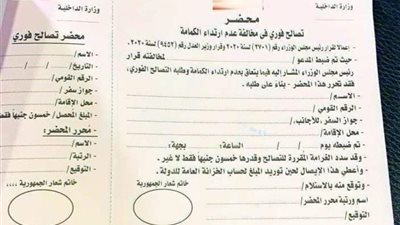 وزارة الداخلية
محضر
تصالح فوري في مخالفة عدم ارتداء الكمامة
- إعمالا لقرار رئيس مجلس الوزراء رقم (٢٧٠١) لسنة ٢٠٢٠ وقرار وزير العدل رقم (٩٤٥٢) لسنة ٢٠٢٠.
- حيث تم ضبط المدعو / لمخالفته قرار
رئيس مجلس الوزراء المشار إليه فيما يتعلق بعدم ارتداء الكمامة وطلبه التصالح الفوري،
فقد تحرر هذا المحضر - بناء على طلبه .
- الاســـم :
- الرقم القومي :
- جواز السفر، للأجانب،
- محل الإقامة :
- تم ضبطه يوم الساعة: بجهة:
- وقد سدد الغرامة المقررة للتصالح وقدرها خمسون جنيهاً فقط لا غير .
- وأعطي هذا الإيصال لحين توريد المبلغ لحساب الخزانة العامة للدولة .
- وتوقع منه بالاستلام /
- اسم ورتبة محرر المحضر/
- التوقيع / خاتم شعار الجمهورية
وزارة الداخلية
محضر تصالح فوري
- الاسم/
- التاريخ/
- الرقم القومي /
- جواز سفر/
- محل الإقامة/
- المبلغ المحصل/ خمسون جنيهاً فقط
- محرر المحضر:
- الاسم/
- الرتبة/
- التوقيع/
خاتم شعار الجمهورية ,,,,